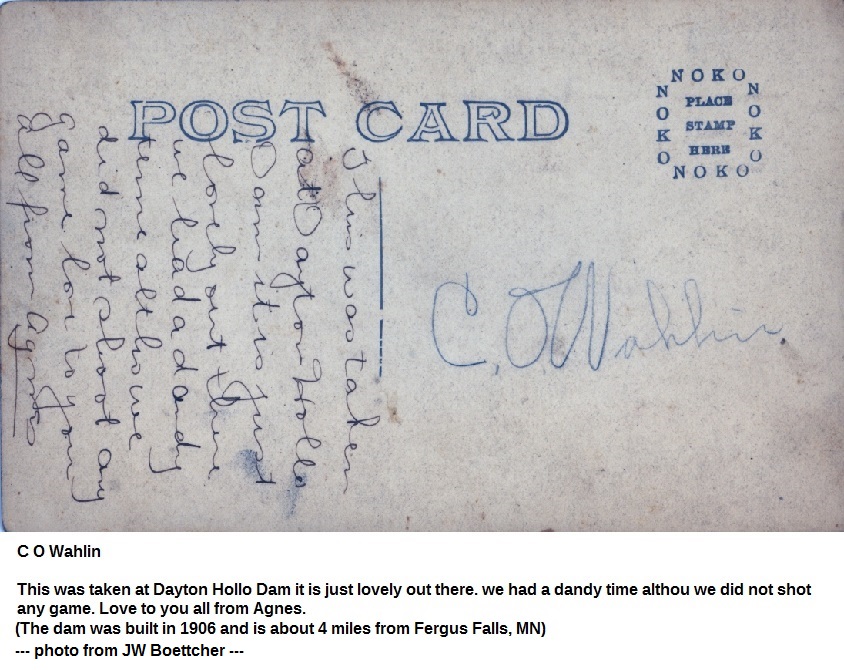 POST CARD
NOKO
NOKO
PLACE
STAMP
HERE
NOKO
NOKO
This was taken
at Dayton Hollo
Dam it is just
lovely out there
we had a dandy
time althou we
did not shoot any
game love to you
all from Agnes
C. O Wahlin.
C O Wahlin
This was taken at Dayton Hollo Dam it is just lovely out there. we had a dandy time althou we did not shot
any game. Love to you all from Agnes.
(The dam was built in 1906 and is about 4 miles from Fergus Falls, MN)
--- photo from JW Boettcher ---